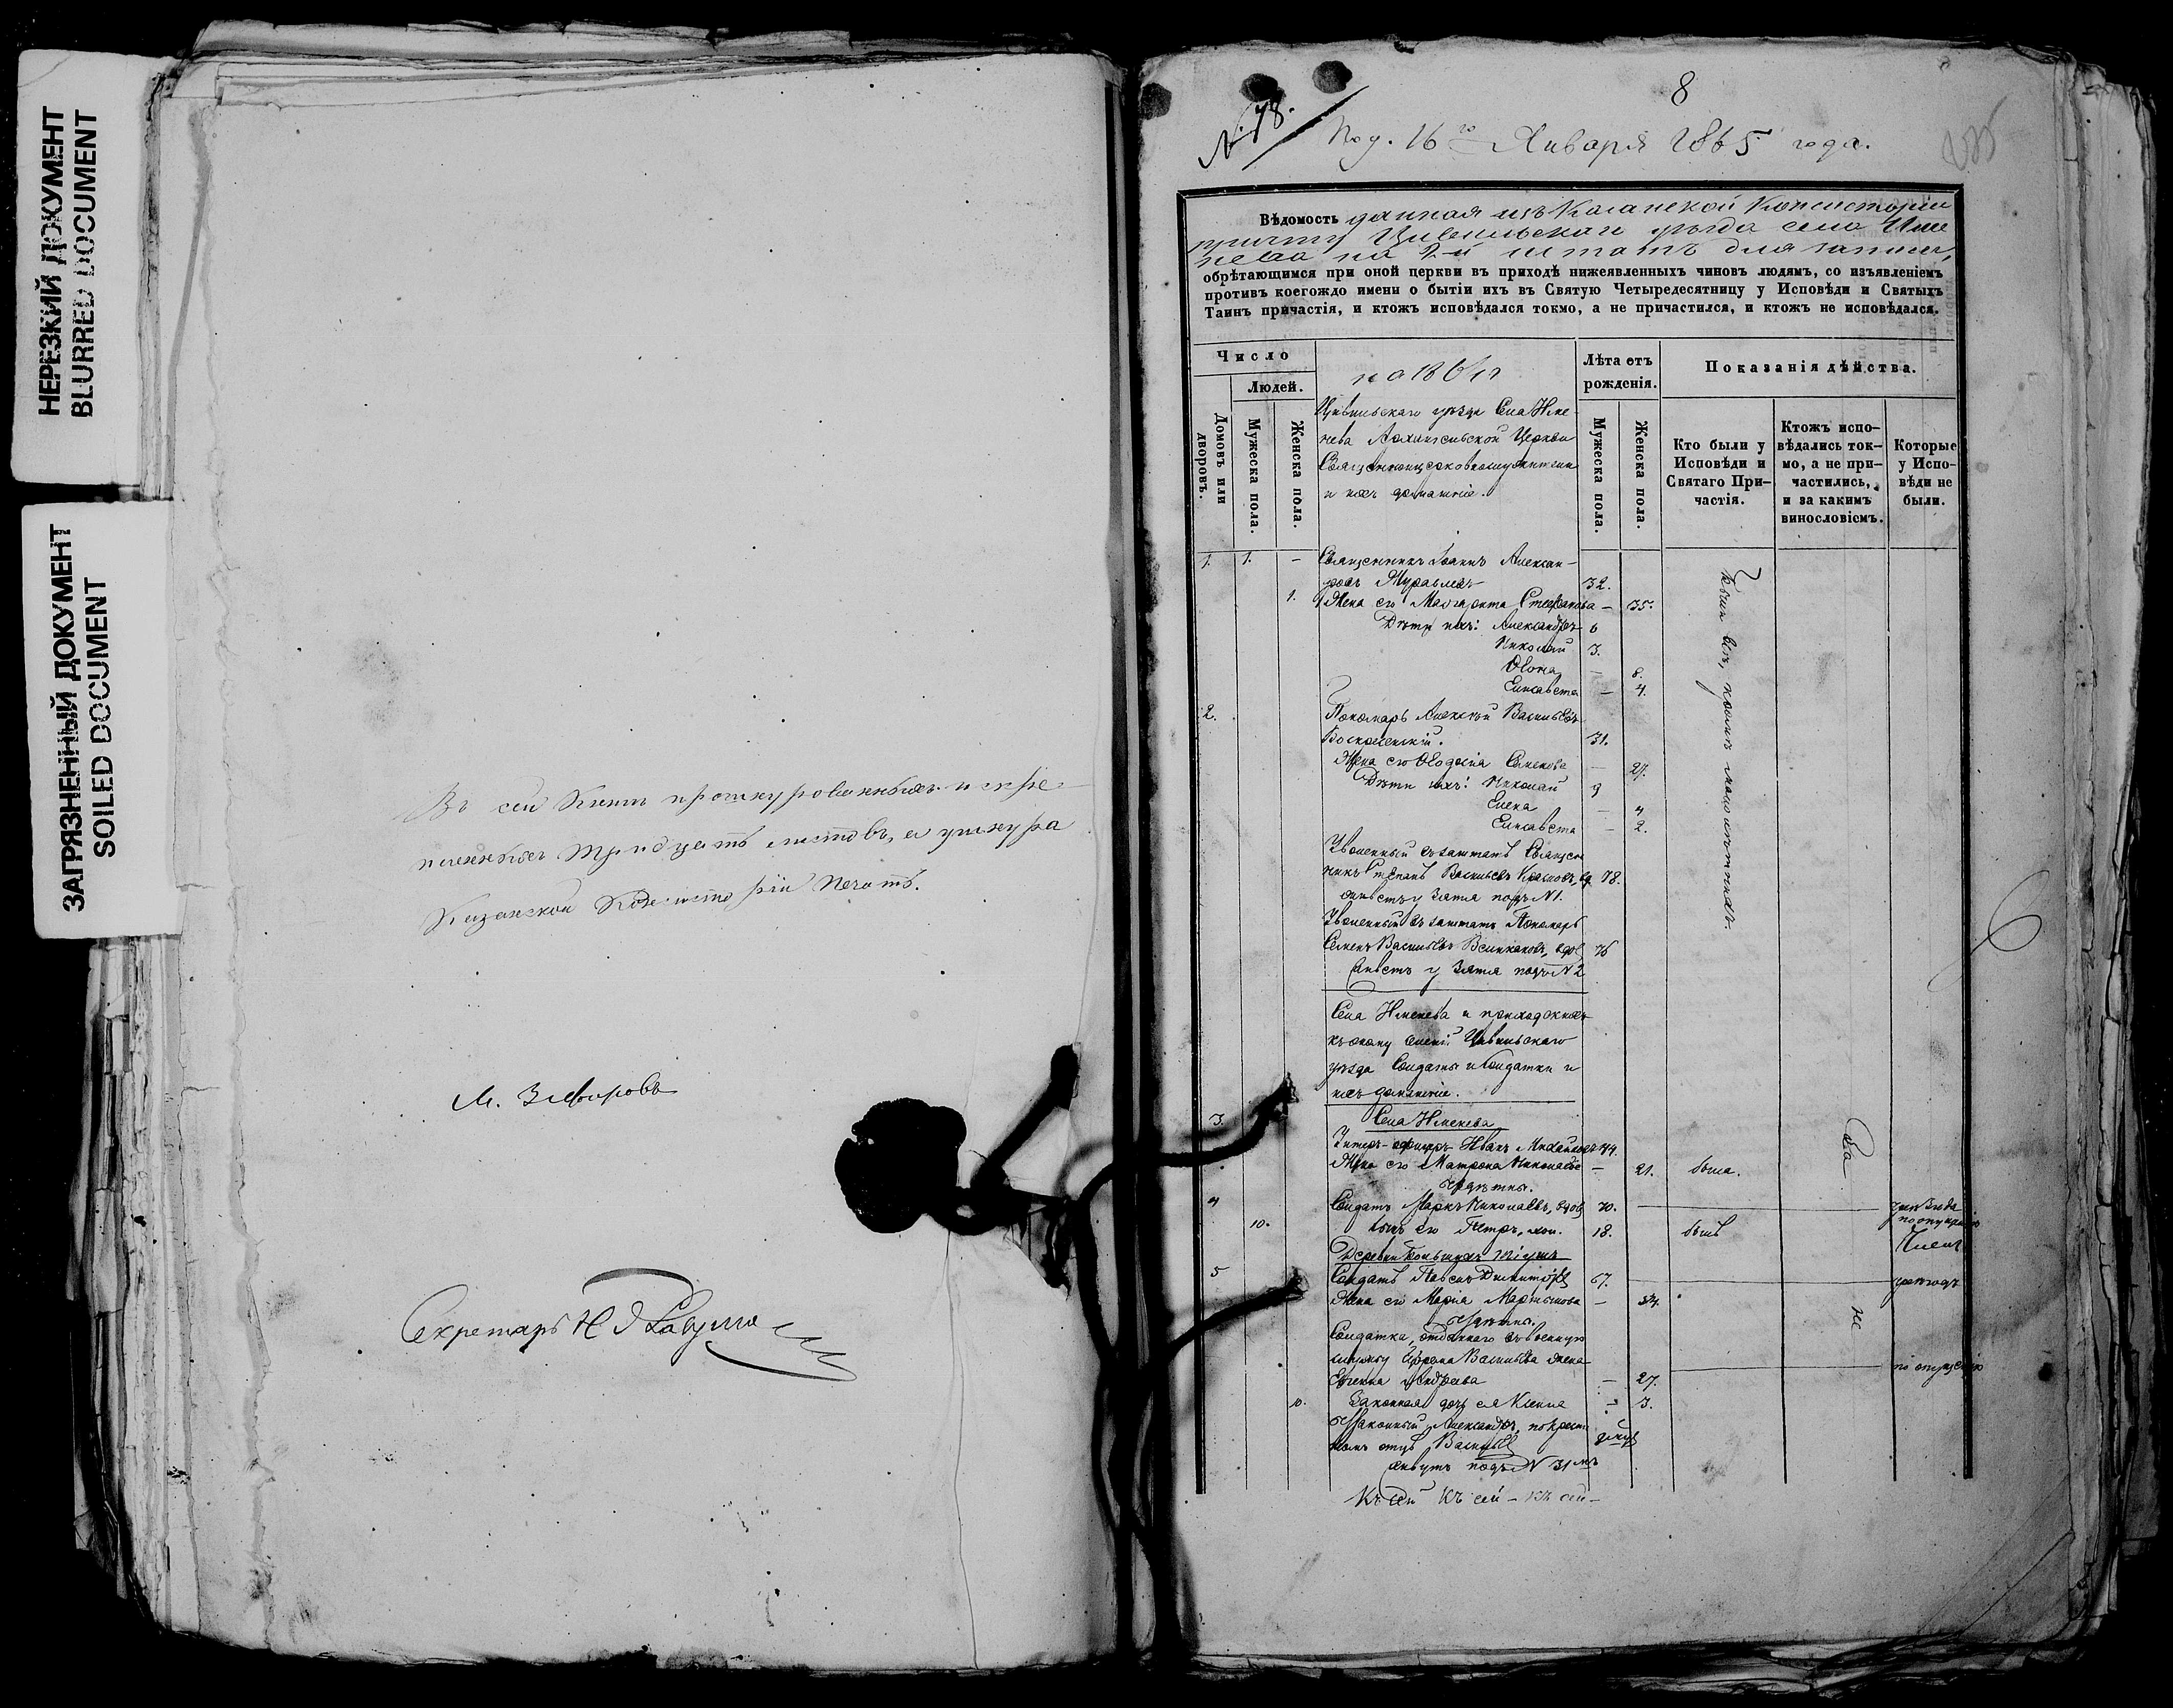 НЕРЕЗКИЙ ДОКУМЕНТ
BLURRED DOCUMENT
ЗАГРЯЗНЕННЫЙ ДОКУМЕНТ
SOILED DOCUMENT
Въ сей Книгѣ прошнурованныхъ и скрѣ-
пленныхъ тридцать листовъ, а у шнура
Казанской Консисторіи печать.
Секретарь
8
N. 78.
Под. 16го Января 1865 года.
Вѣдомость данная изъ Казанской Консисторіи
причту Цивильскаго уѣзда села Име
нева на для записи,
обрѣтающимся при оной церкви въ приходѣ нижеявленныхъ чиновъ людямъ, со изъявленіемъ
противъ коегождо имени о бытіи ихъ въ Святую Четыредесятницу у Исповѣди и Святыхъ
Таинъ причастія, и ктожъ исповѣдался токмо, а не причастился, и ктожъ не исповѣдался.
Число
Людей.
Домовъ или дворовъ.
Мужеска пола.
Женска пола.
Цивильскаго уѣзда Села Име-
нева Архангельской Церкви
Священноцерковнослужители
и ихъ домашніе.
Лѣта отъ рожденія.
Мужеска пола.
Женска пола.
Показанія дѣйства.
Кто были у Исповѣди и Святаго При-частія.
Ктожъ испо-вѣдались ток-мо, а не при-частились, и за какимъ винословіемъ.
Которые у Испо-вѣди не были.
1. 1. – Священникъ Іоаннъ Алексан-
дровъ Муравлевъ 32.
1. Жена его Маргарита Стефанова – 35.
Дѣти ихъ: Александръ 6
Николай 3.
– 8.
Елисавета – 4.
Были всѣ, кромѣ малолѣтнихъ.
2. Пономарь Алексѣй Васильевъ
31.
Жена его Ѳеодосія Семенова – 27.
Дѣти ихъ: Николай 9
Елена – 4
Елисавета – 2.
Уволенный въ заштатъ Священ
никъ Степанъ Васильевъ вд. 78.
живетъ у Зятя подъ N 1.
Уволенный въ заштатъ Пономарь
Семенъ Васильевъ вдов 76
живетъ у Зятя подъ N 2
Села Именева и приходскихъ
къ оному селеній Цивильскаго
уѣзда Солдаты и Солдатки и
ихъ домашніе.
3. Села Именева
Унтеръ-офицеръ Иванъ Михайловъ 44.
Жена его Матрона – 21. была.
бездѣтны.
4 Солдатъ Маркъ Николаевъ, вдов 70.
10. Сынъ его Петръ, хол. 18. былъ
Деревни
5 Солдатъ Павелъ Димитріев 67.
Жена его Марія Мартынова – 54.
бездѣтны.
Солдатка, отданнаго въ военную
службу Васильева жена
Евгенія Андреева – 27.
10. Законная дочь ея Ксенія 3.
незаконный Александръ, по крест
ному отцу Васильев
живутъ подъ N 31мъ
Къ сей Къ сей – къ сей –